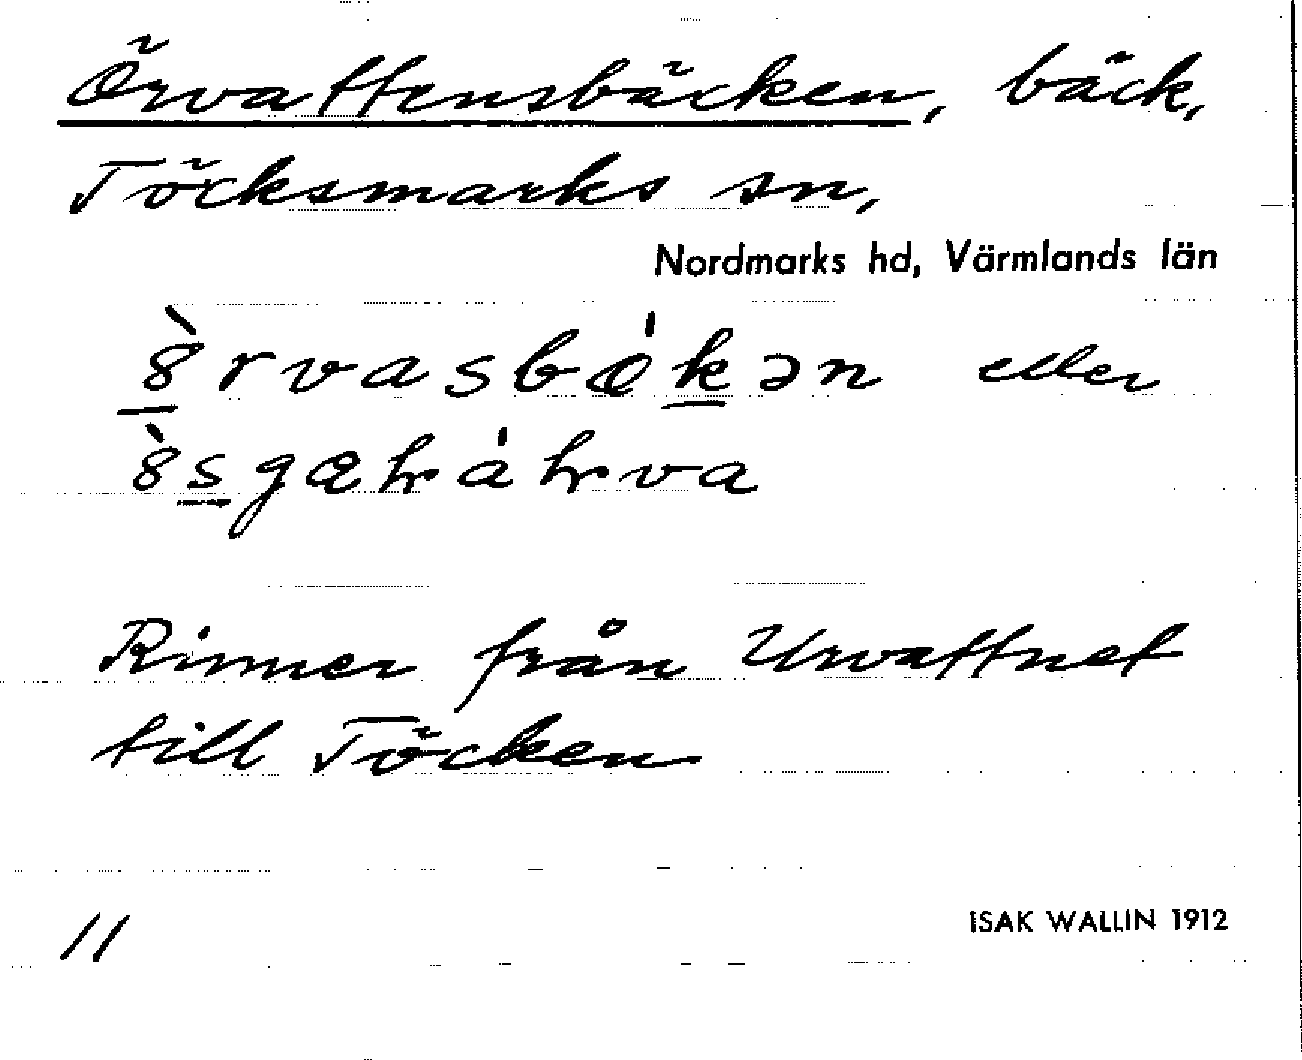 Örvattensbäcken, bäck,
Töcksmarks sn,
Nordmarks hd, Värmlands län
eller
Rinner från Urvattnet
till Töcken
11
ISAK WALLIN 1912